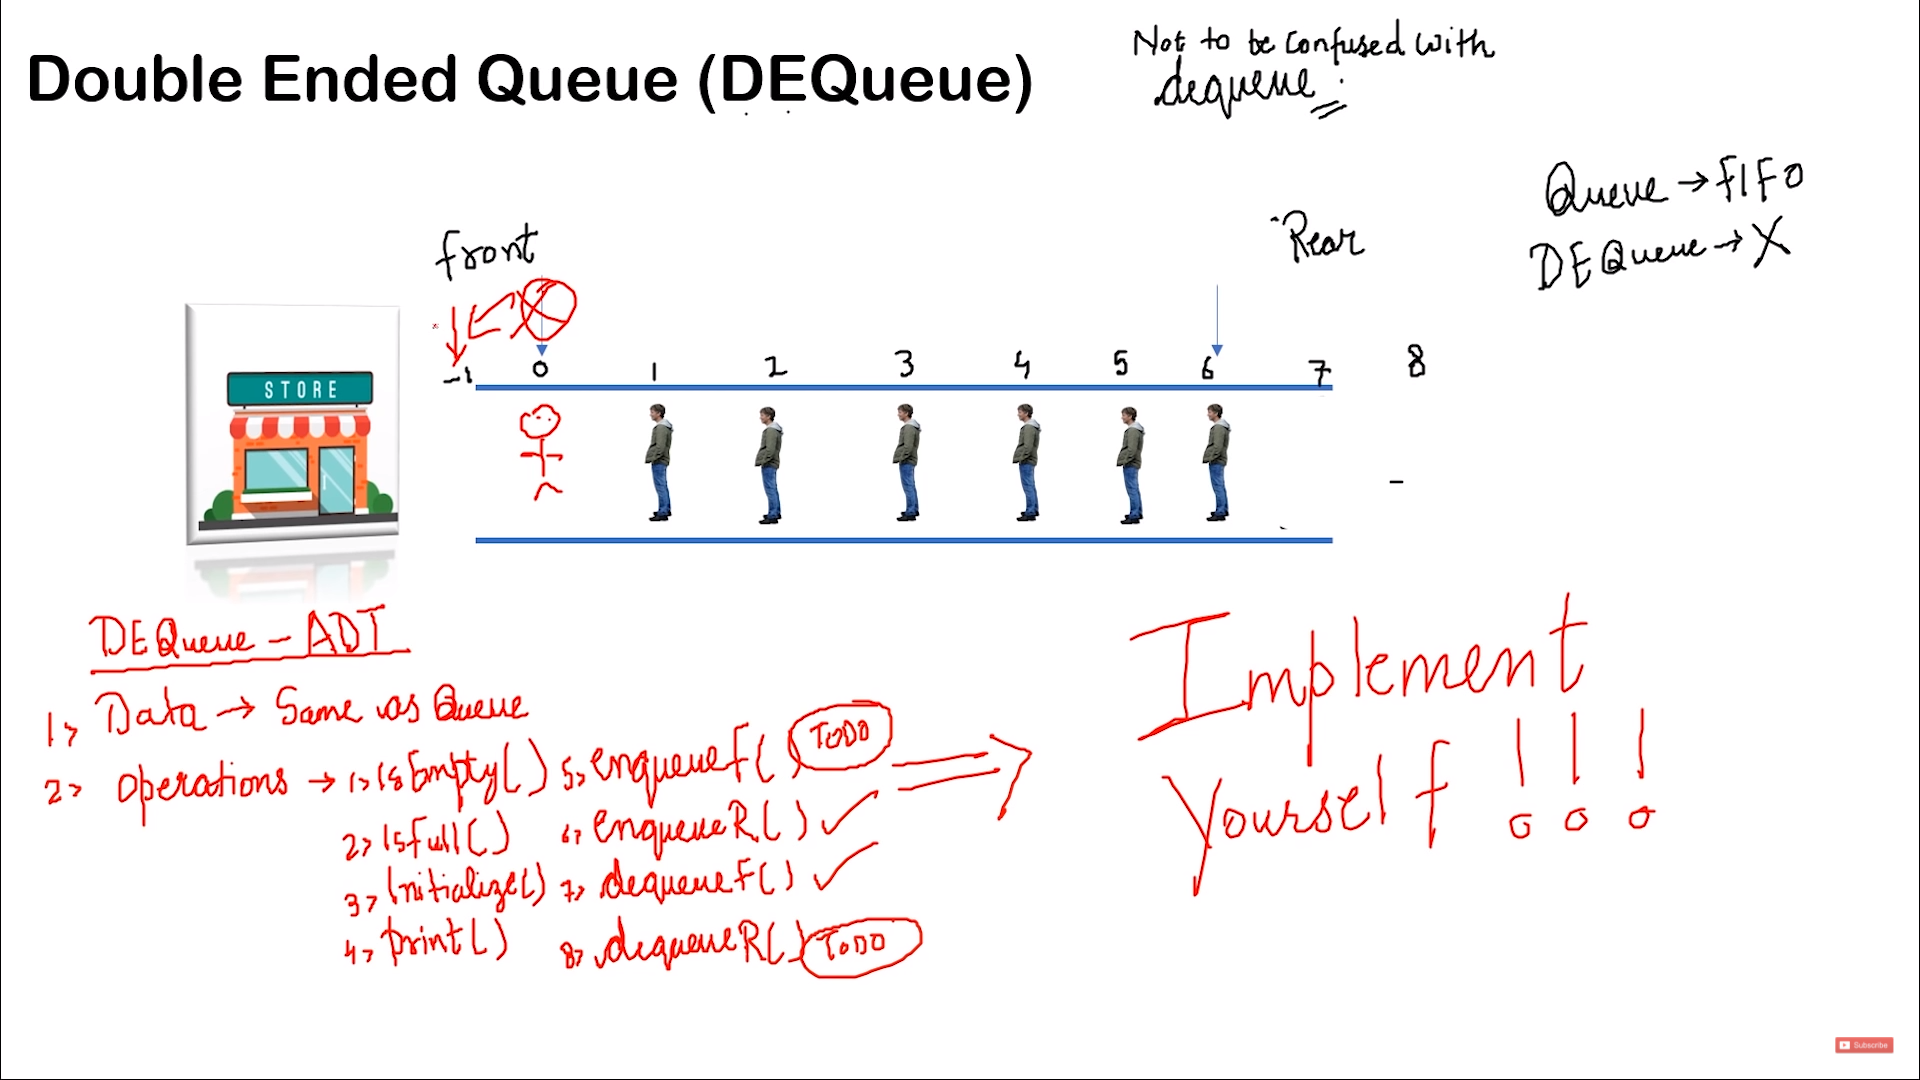 Double Ended Queue (DEQueue)
Not to be confused with
dequeue
Queue → FIFO
DEQueue → X
front
Rear
-1 0 1 2 3 4 5 6 7 8
STORE
DEQueue - ADT
1> Data → Same as Queue
2> operations → 1> isEmpty() 5> enqueueF() TODO
2> isfull() 6> enqueueR() ✓
3> initialize() 7> dequeueF() ✓
4> print() 8> dequeueR() TODO
Implement
Yourself !!!
Subscribe